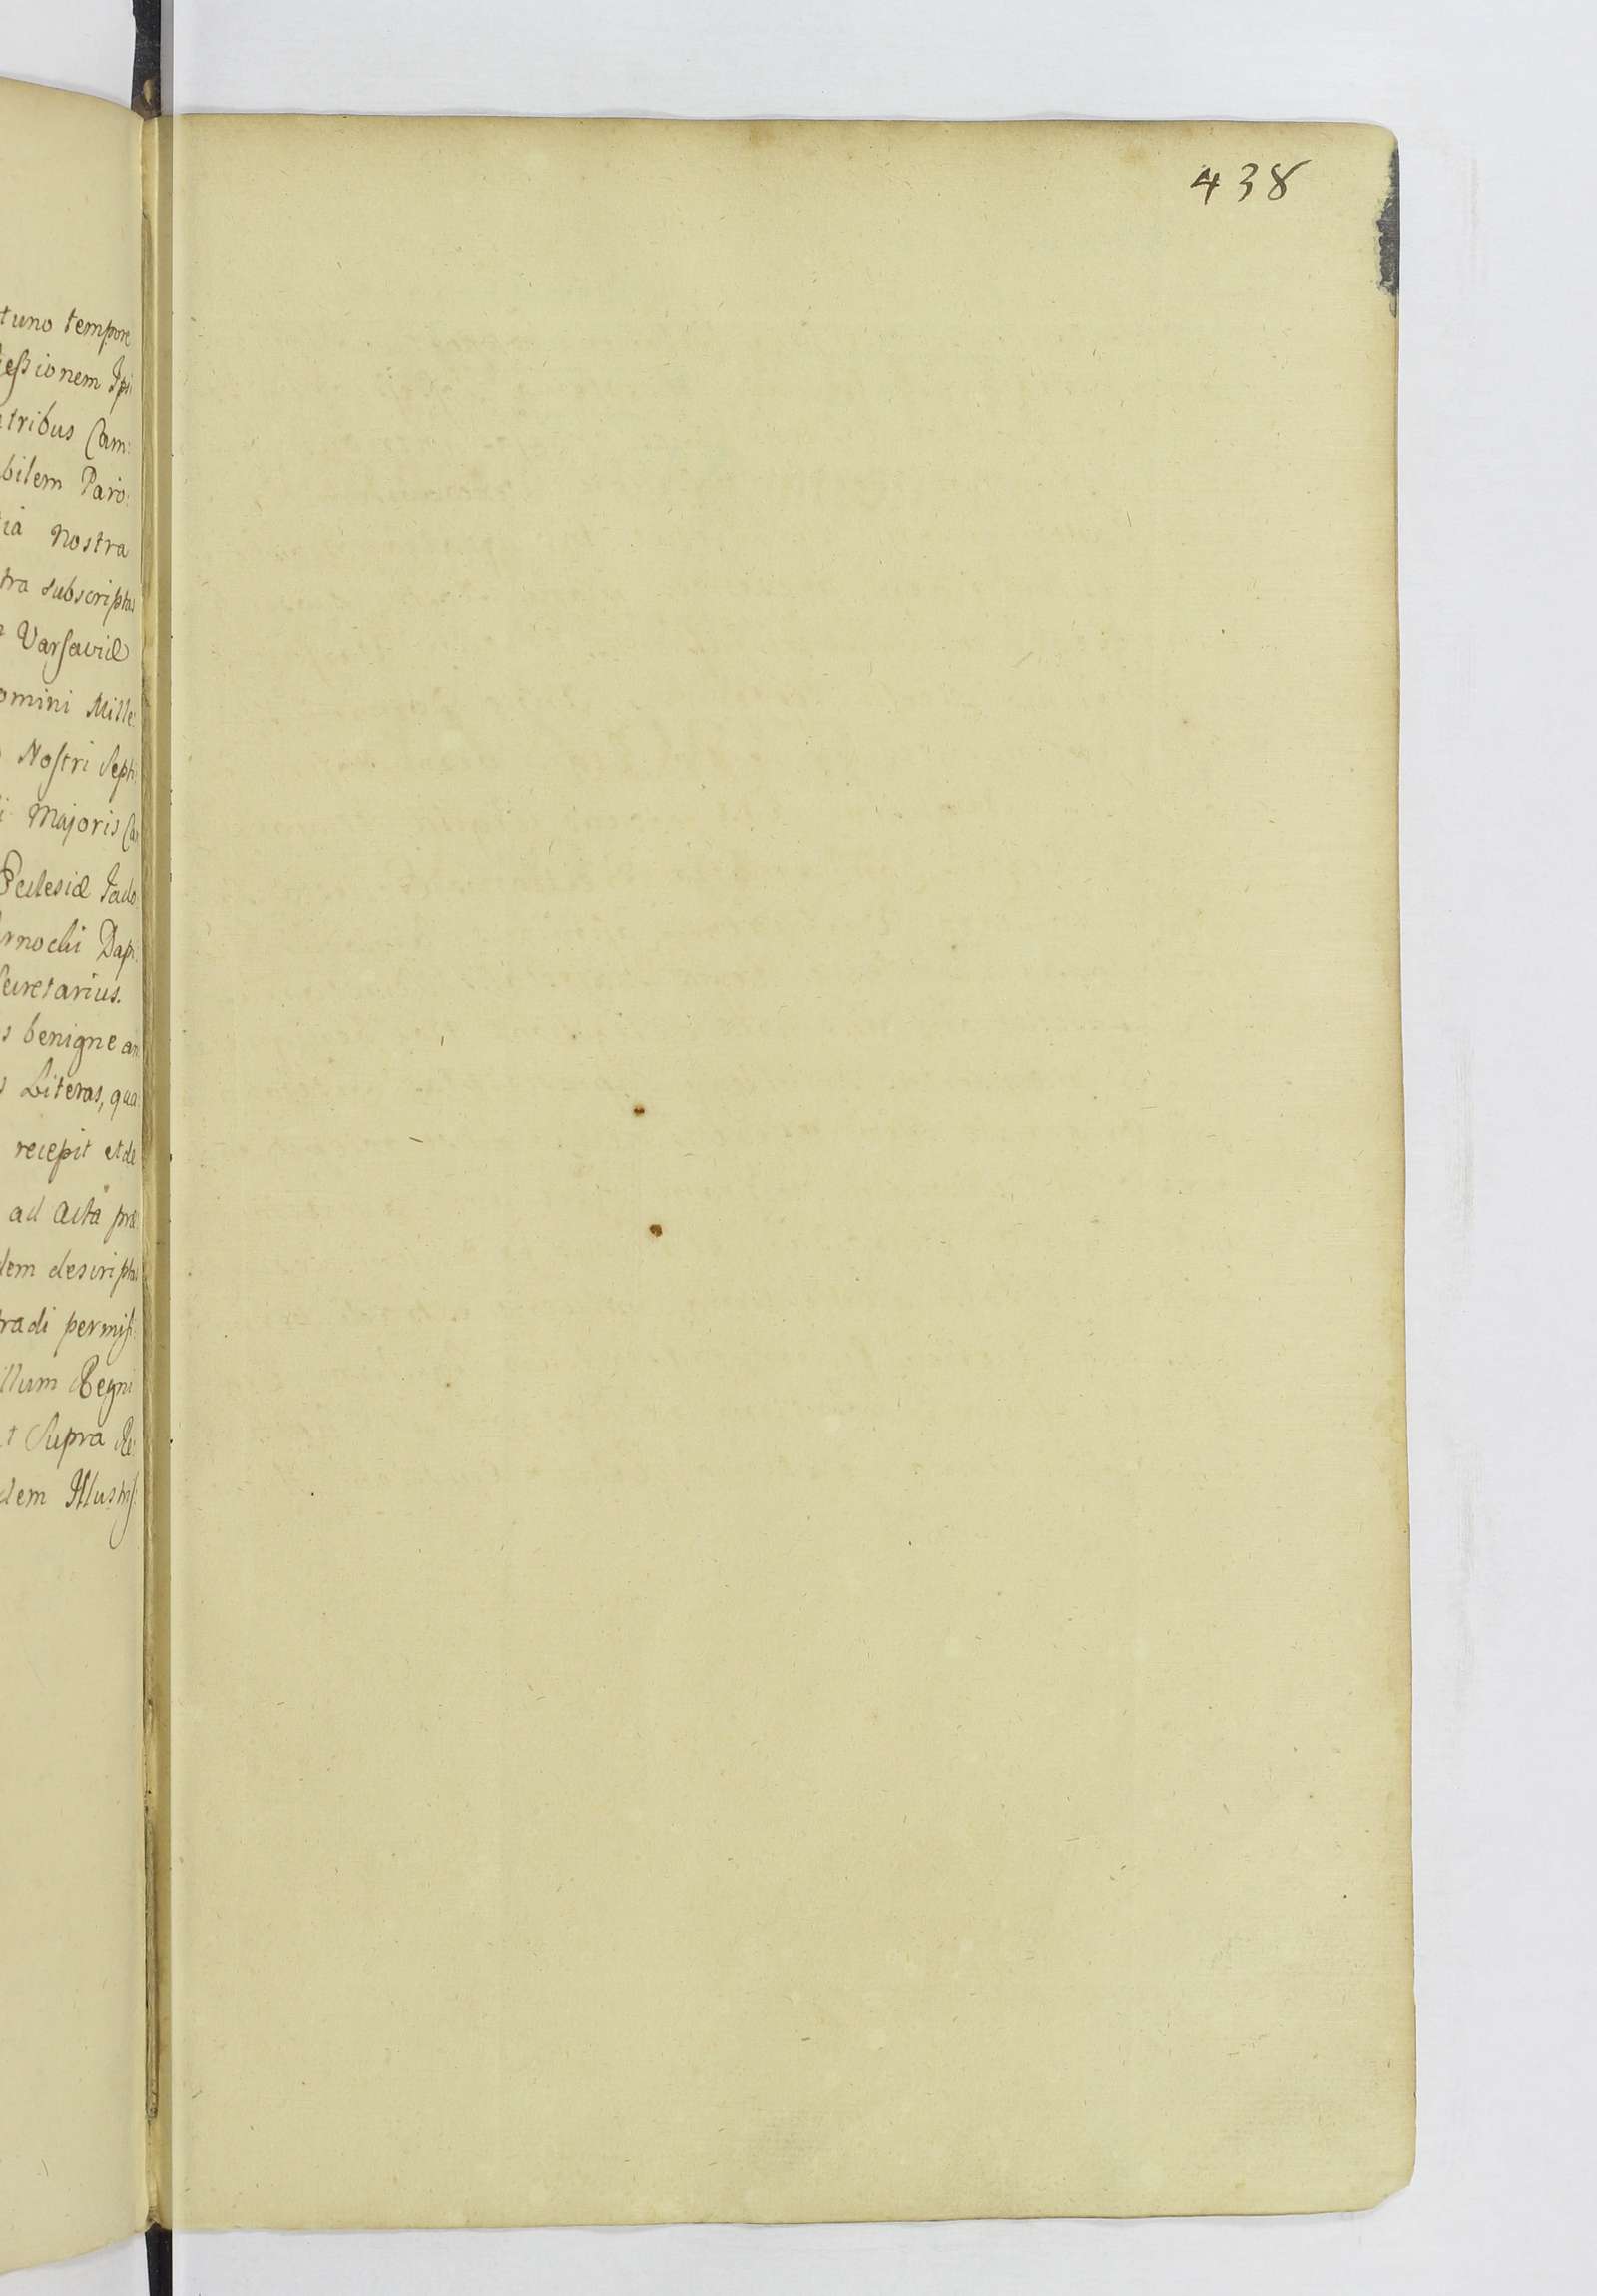 438
tuno tempore
essionem Ipi
tribus Cam:
bilem Paro:
ia nostra
tra subscriptas
Varsaviæ
omini Mille:
Nostri Septi
i Majoris Ca
Ecclesiæ
rnochi Dapi:
Secretarius.
s benigne an
s Literas, qua
recepit et de
ad Acta præ
dem descriptas
radi permis:
illum Regni
t supra Re:
dem Illustris